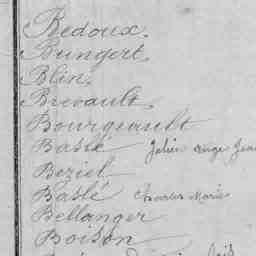 Bedoux.
Bungert.
Blin.
Brevault.
Bourgeault
Baslé Julien Ange Jean
Beziel
Baslé Charles Marie
Bellanger
Boison